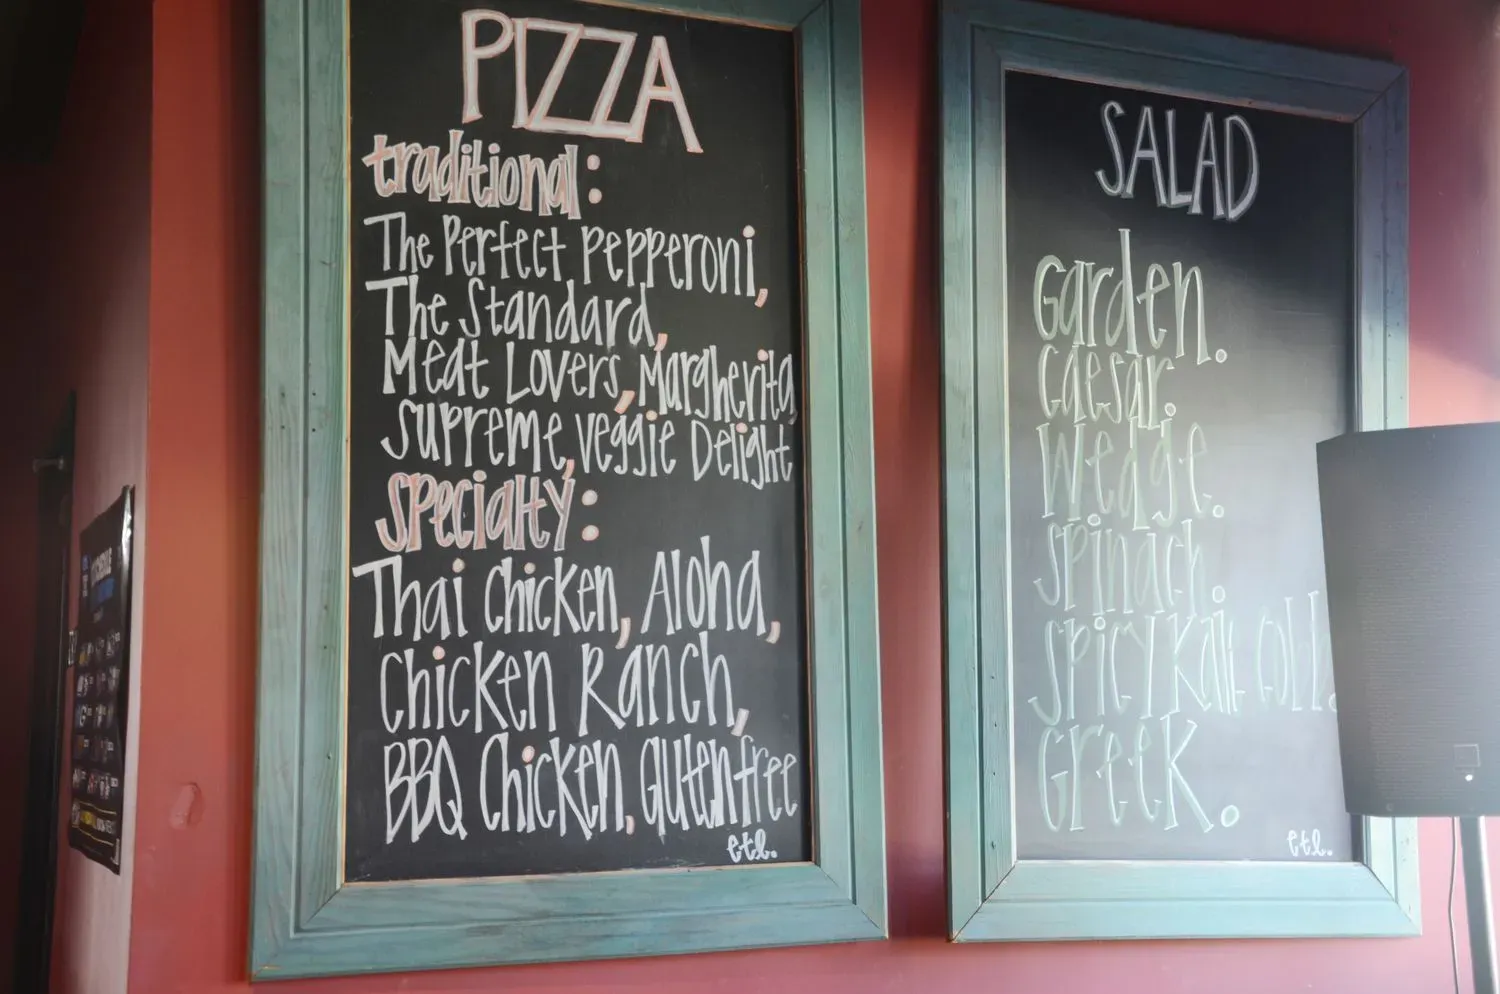 PIZZA
traditional:
The Perfect Pepperoni,
The Standard,
Meat Lovers, Margherita
Supreme, Veggie Delight
Specialty:
Thai Chicken, Aloha,
Chicken Ranch,
BBQ Chicken, Gluten free
etl.
SALAD
Garden.
Caesar.
Wedge.
Spinach.
Spicy Kale
Greek.
etl.